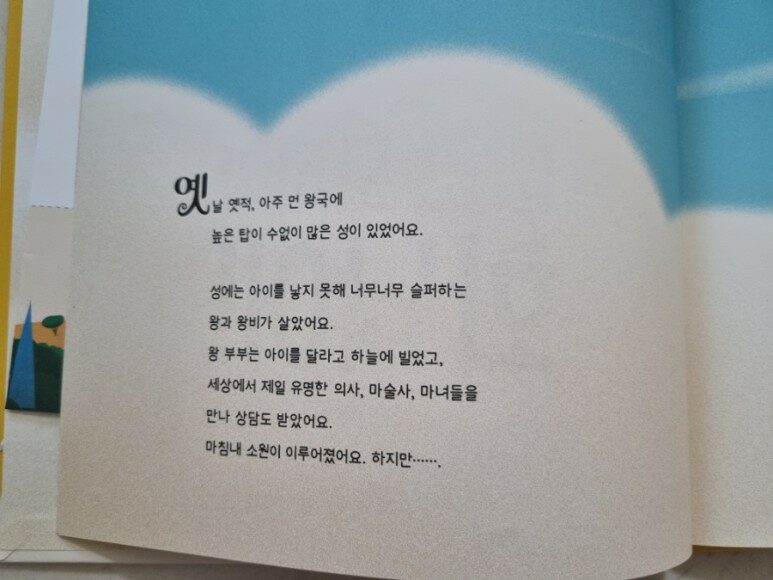 옛날 옛적, 아주 먼 왕국에
높은 탑이 수없이 많은 성이 있었어요.
성에는 아이를 낳지 못해 너무너무 슬퍼하는
왕과 왕비가 살았어요.
왕 부부는 아이를 달라고 하늘에 빌었고,
세상에서 제일 유명한 의사, 마술사, 마녀들을
만나 상담도 받았어요.
마침내 소원이 이루어졌어요. 하지만…….